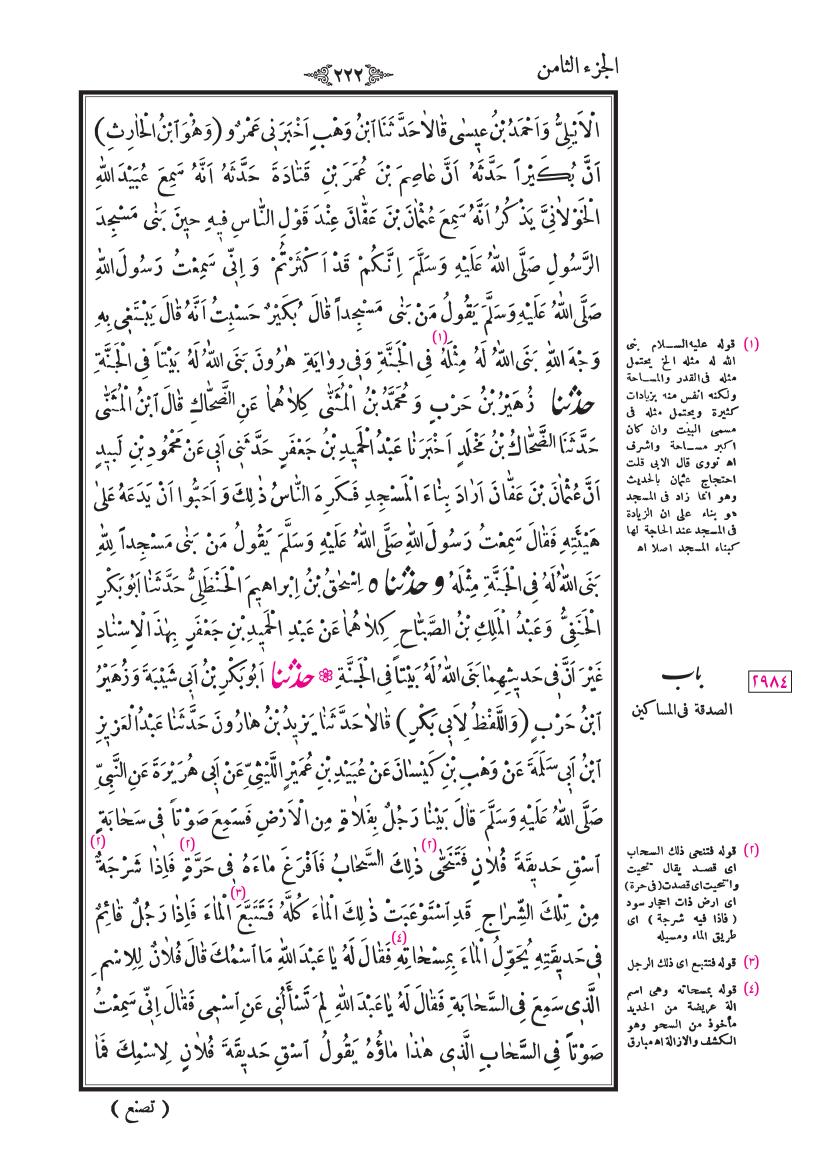 الجزء الثامن
٢٢٢
الْأَيْلِيُّ وَاَحْمَدُ بْنُ عِيسٰى قَالاٰ حَدَّثَنَا ابْنُ وَهْبٍ اَخْبَرَنِي عَمْرٌو (وَهُوَ ابْنُ الْحَارِثِ)
اَنَّ بُكَيْراً حَدَّثَهُ اَنَّ عَاصِمَ بْنَ عُمَرَ بْنِ قَتَادَةَ حَدَّثَهُ اَنَّهُ سَمِعَ عُبَيْدَ اللهِ
الْخَوْلاَنِيَّ يَذْكُرُ اَنَّهُ سَمِعَ عُثْمَانَ بْنَ عَفَّانَ عِنْدَ قَوْلِ النَّاسِ فِيهِ حِينَ بَنٰى مَسْجِدَ
الرَّسُولِ صَلَّى اللهُ عَلَيْهِ وَسَلَّمَ اِنَّكُمْ قَدْ اَكْثَرْتُمْ وَاِنِّي سَمِعْتُ رَسُولَ اللهِ
صَلَّى اللهُ عَلَيْهِ وَسَلَّمَ يَقُولُ مَنْ بَنٰى مَسْجِداً قَالَ بُكَيْرٌ حَسِبْتُ اَنَّهُ قَالَ يَبْتَغِي بِهِ
وَجْهَ اللهِ بَنَى اللهُ لَهُ مِثْلَهُ (١) فِي الْجَنَّةِ وَفِي رِوَايَةِ هٰرُونَ بَنَى اللهُ لَهُ بَيْتاً فِي الْجَنَّةِ
حَدَّثَنَا زُهَيْرُ بْنُ حَرْبٍ وَمُحَمَّدُ بْنُ الْمُثَنّٰى كِلاٰهُمَا عَنِ الضَّحَّاكِ قَالَ ابْنُ الْمُثَنّٰى
حَدَّثَنَا الضَّحَّاكُ بْنُ مَخْلَدٍ اَخْبَرَنَا عَبْدُ الْحَمِيدِ بْنُ جَعْفَرٍ حَدَّثَنِي اَبِي عَنْ مَحْمُودِ بْنِ لَبِيدٍ
اَنَّ عُثْمَانَ بْنَ عَفَّانَ اَرَادَ بِنَاءَ الْمَسْجِدِ فَكَرِهَ النَّاسُ ذٰلِكَ وَاَحَبُّوا اَنْ يَدَعَهُ عَلىٰ
هَيْئَتِهِ فَقَالَ سَمِعْتُ رَسُولَ اللهِ صَلَّى اللهُ عَلَيْهِ وَسَلَّمَ يَقُولُ مَنْ بَنٰى مَسْجِداً لِلهِ
بَنَى اللهُ لَهُ فِي الْجَنَّةِ مِثْلَهُ وحَدَّثَنَاه اِسْحٰقُ بْنُ اِبْراهِيمَ الْحَنْظَلِيُّ حَدَّثَنَا اَبُو بَكْرٍ
الْحَنَفِيُّ وَعَبْدُ الْمَلِكِ بْنُ الصَّبَّاحِ كِلاٰهُمَا عَنْ عَبْدِ الْحَمِيدِ بْنِ جَعْفَرٍ بِهٰذَا الْاِسْنَادِ
غَيْرَ اَنَّ فِي حَدِيثِهِمَا بَنَى اللهُ لَهُ بَيْتاً فِي الْجَنَّةِ ❁ حَدَّثَنَا اَبُو بَكْرِ بْنُ اَبِي شَيْبَةَ وَزُهَيْرُ
ابْنُ حَرْبٍ (وَاللَّفْظُ لِاَبِي بَكْرٍ) قَالاٰ حَدَّثَنَا يَزِيدُ بْنُ هَارُونَ حَدَّثَنَا عَبْدُ الْعَزِيزِ
ابْنُ اَبِي سَلَمَةَ عَنْ وَهْبِ بْنِ كَيْسَانَ عَنْ عُبَيْدِ بْنِ عُمَيْرٍ اللَّيْثِيِّ عَنْ اَبِي هُرَيْرَةَ عَنِ النَّبِيِّ
صَلَّى اللهُ عَلَيْهِ وَسَلَّمَ قَالَ بَيْنَا رَجُلٌ بِفَلاَةٍ مِنَ الْاَرْضِ فَسَمِعَ صَوْتاً فِي سَحَابَةٍ
اَسْقِ حَدِيقَةَ فُلاَنٍ فَتَنَحّٰى (٢) ذٰلِكَ السَّحَابُ فَاَفْرَغَ مَاءَهُ فِي حَرَّةٍ (٢) فَاِذَا شَرْجَةٌ (٢)
مِنْ تِلْكَ الشِّرَاجِ قَدِ اسْتَوْعَبَتْ ذٰلِكَ الْمَاءَ كُلَّهُ فَتَتَبَّعَ (٣) الْمَاءَ فَاِذَا رَجُلٌ قَائِمٌ
فِي حَدِيقَتِهِ يُحَوِّلُ الْمَاءَ بِمِسْحَاتِهِ (٤) فَقَالَ لَهُ يَا عَبْدَ اللهِ مَا اسْمُكَ قَالَ فُلاَنٌ لِلاِسْمِ
الَّذِي سَمِعَ فِي السَّحَابَةِ فَقَالَ لَهُ يَا عَبْدَ اللهِ لِمَ تَسْأَلُنِي عَنِ اسْمِي فَقَالَ اِنِّي سَمِعْتُ
صَوْتاً فِي السَّحَابِ الَّذِي هٰذَا مَاؤُهُ يَقُولُ اسْقِ حَدِيقَةَ فُلاَنٍ لِاسْمِكَ فَمَا
( تصنع )
(١) قوله عليه السلام بنى
الله له مثله الخ يحتمل
مثله فى القدر والمساحة
ولكنه انفس منه بزيادات
كثيرة ويحتمل مثله فى
مسمى البيت وان كان
اكبر مساحة واشرف
اه نووى قال الابى قلت
احتجاج عثمان بالحديث
وهو انما زاد فى المسجد
هو بناء على ان الزيادة
فى المسجد عند الحاجة لها
كبناء المسجد اصلا اه
باب
الصدقة فى المساكين
٢٩٨٤
(٢) قوله فتنحى ذلك السحاب
اى قصد يقال تنحيت
وانتحيت اى قصدت (فى حرة)
اى ارض ذات احجار سود
( فاذا فيه شرجة ) اى
طريق الماء ومسيله
(٣) قوله فتتبع اى ذلك الرجل
(٤) قوله بمسحاته وهى اسم
الة عريضة من الحديد
مأخوذ من السحو وهو
الكشف والازالة اه مبارق